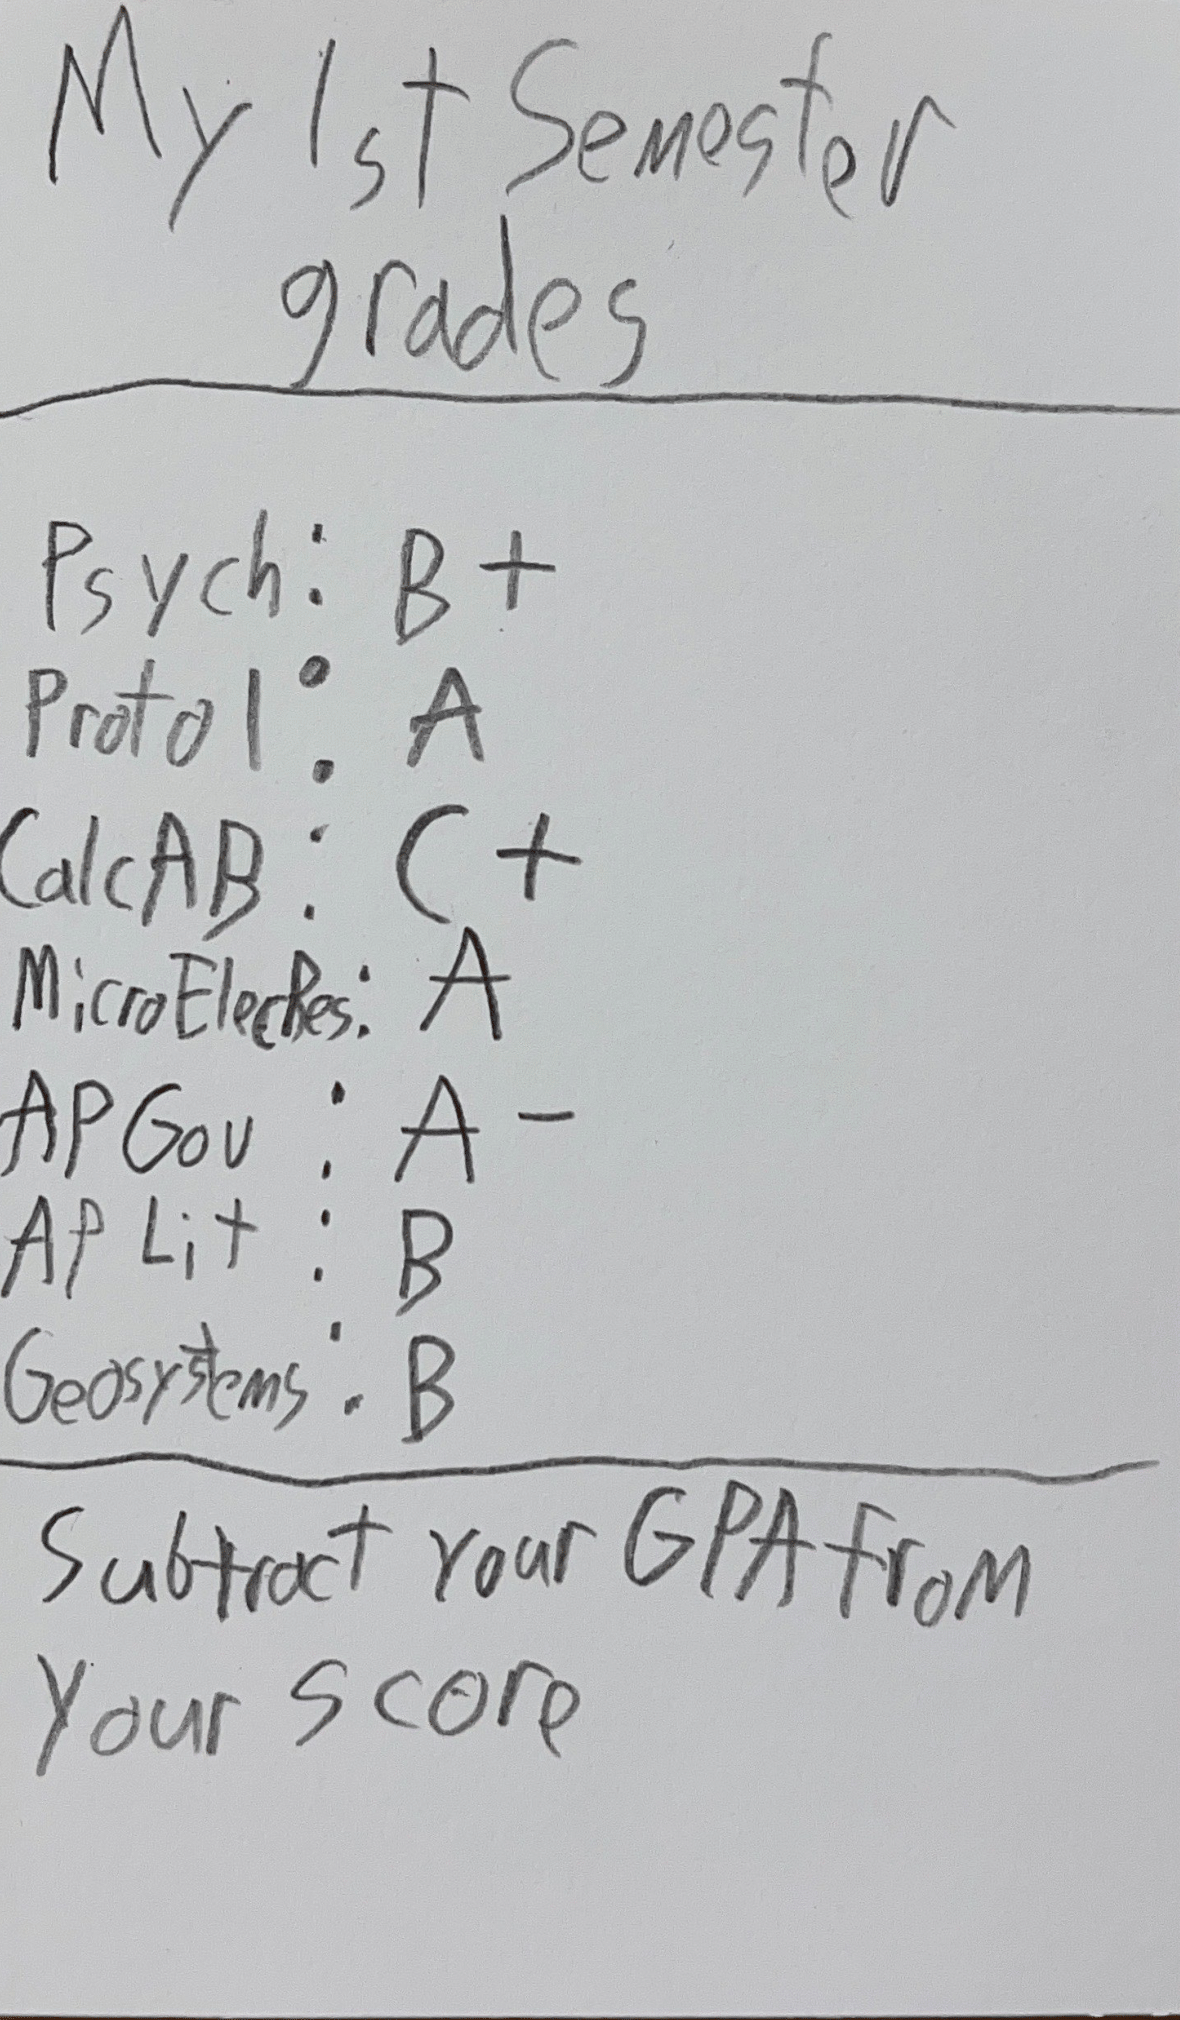 My 1st Semester
grades
Psych: B+
Proto1: A
CalcAB: C+
MicroElecRes: A
AP Gov: A-
AP Lit: B
Geosystems: B
Subtract your GPA from
your score